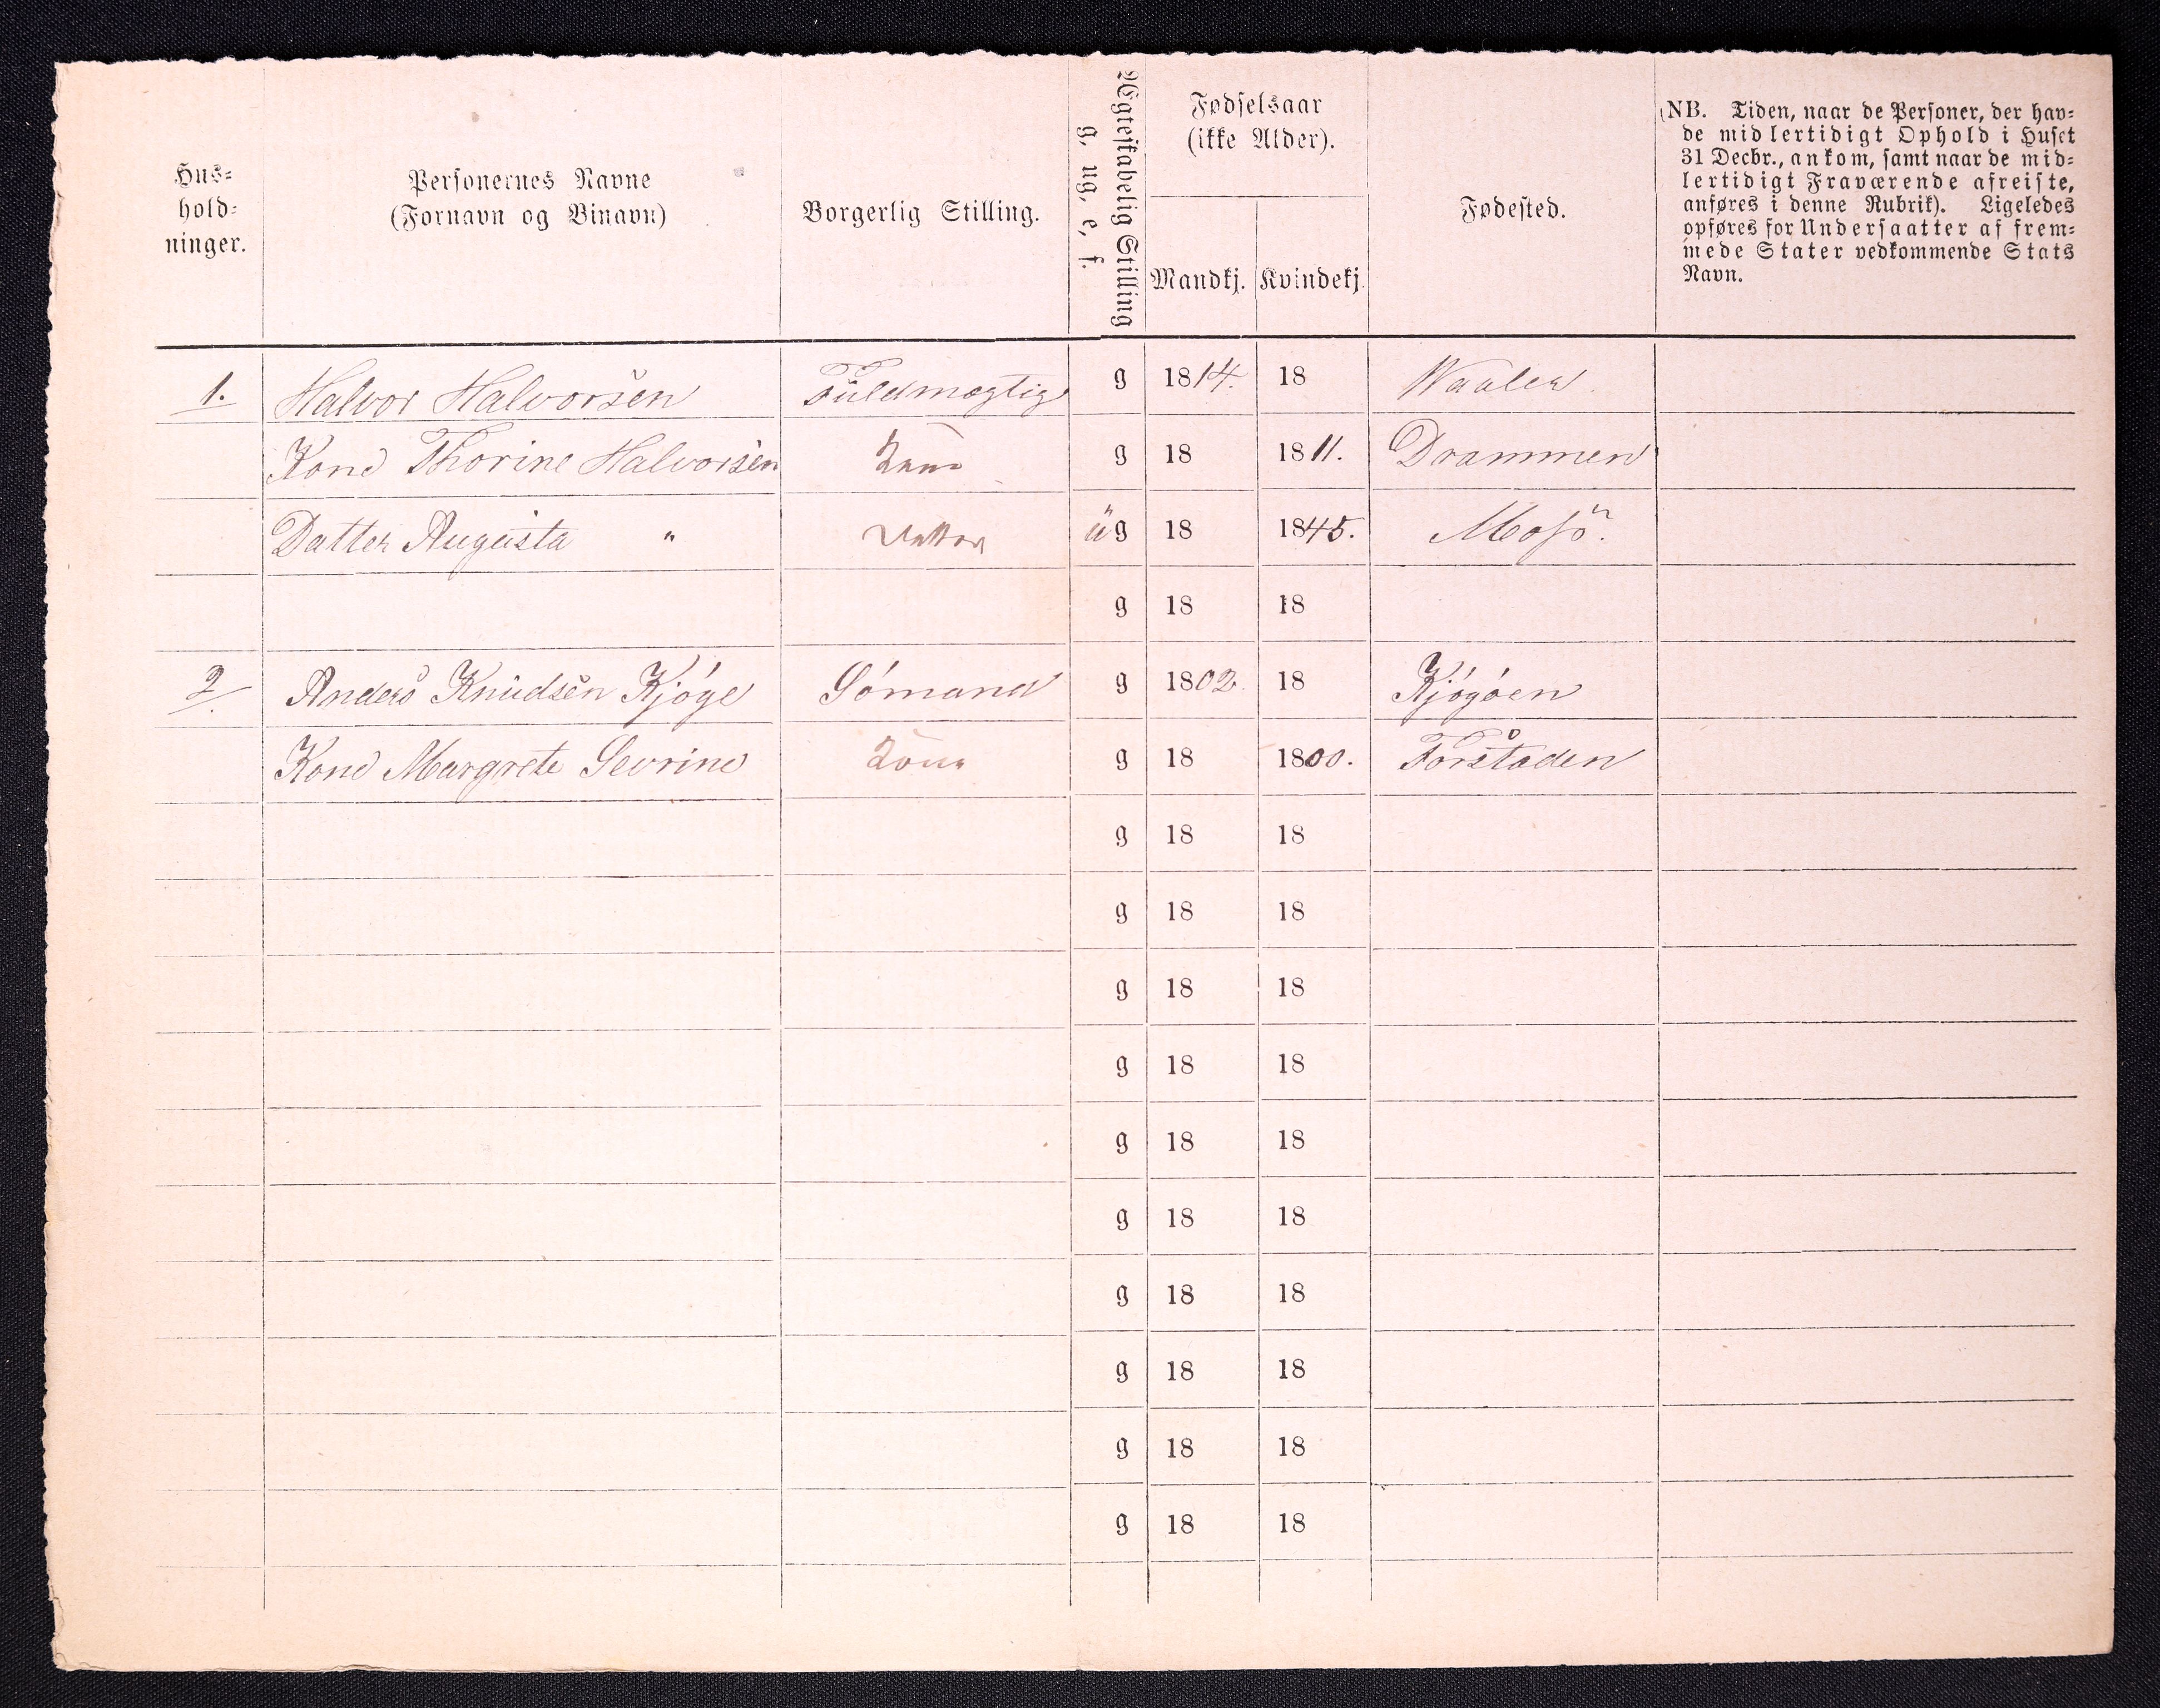 Hus-
hold-
ninger.
Personernes Navne
(Fornavn og Binavn)
Borgerlig Stilling.
Ægteskabelig Stilling
g, ug, e, f.
Fødselsaar
(ikke Alder).
Mandkj. Kvindekj.
Fødested.
(NB. Tiden, naar de Personer, der hav-
de midlertidigt Ophold i Huset
31 Decbr., ankom, samt naar de mid-
lertidigt Fraværende afreiste,
anføres i denne Rubrik). Ligeledes
opføres for Undersaatter af frem-
mede Stater vedkommende Stats
Navn.
1. Halvor Halvorsen Fuldmægtig g 1814. 18 Waaler
Kone Thorine Halvorsen Kone g 18 1811. Drammen
Datter Augusta " Datter ug 18 1845. Moss.
g 18 18
2 Anders Knudsen Kjöge Sömand g 1802 18 Kjögöen
Kone Margrete Sevrine Kone g 18 1800. Forstaden
g 18 18
g 18 18
g 18 18
g 18 18
g 18 18
g 18 18
g 18 18
g 18 18
g 18 18
g 18 18